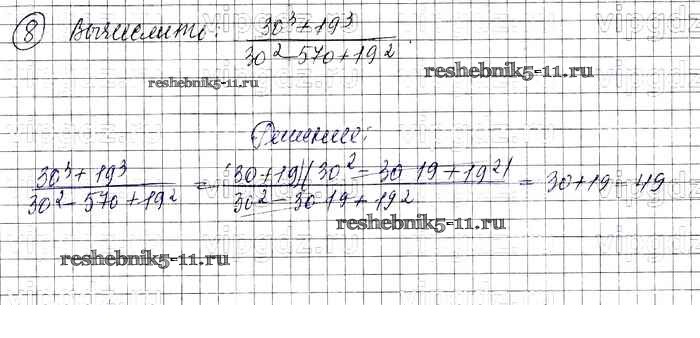 8 Вычислить: (30³ + 19³)/(30² - 570 + 19²).
reshebnik5-11.ru
reshebnik5-11.ru
Решение:
(30³ + 19³)/(30² - 570 + 19²) = ((30 + 19)(30² - 30 19 + 19²))/(30² - 30 19 + 19²) = 30 + 19 = 49
reshebnik5-11.ru
reshebnik5-11.ru